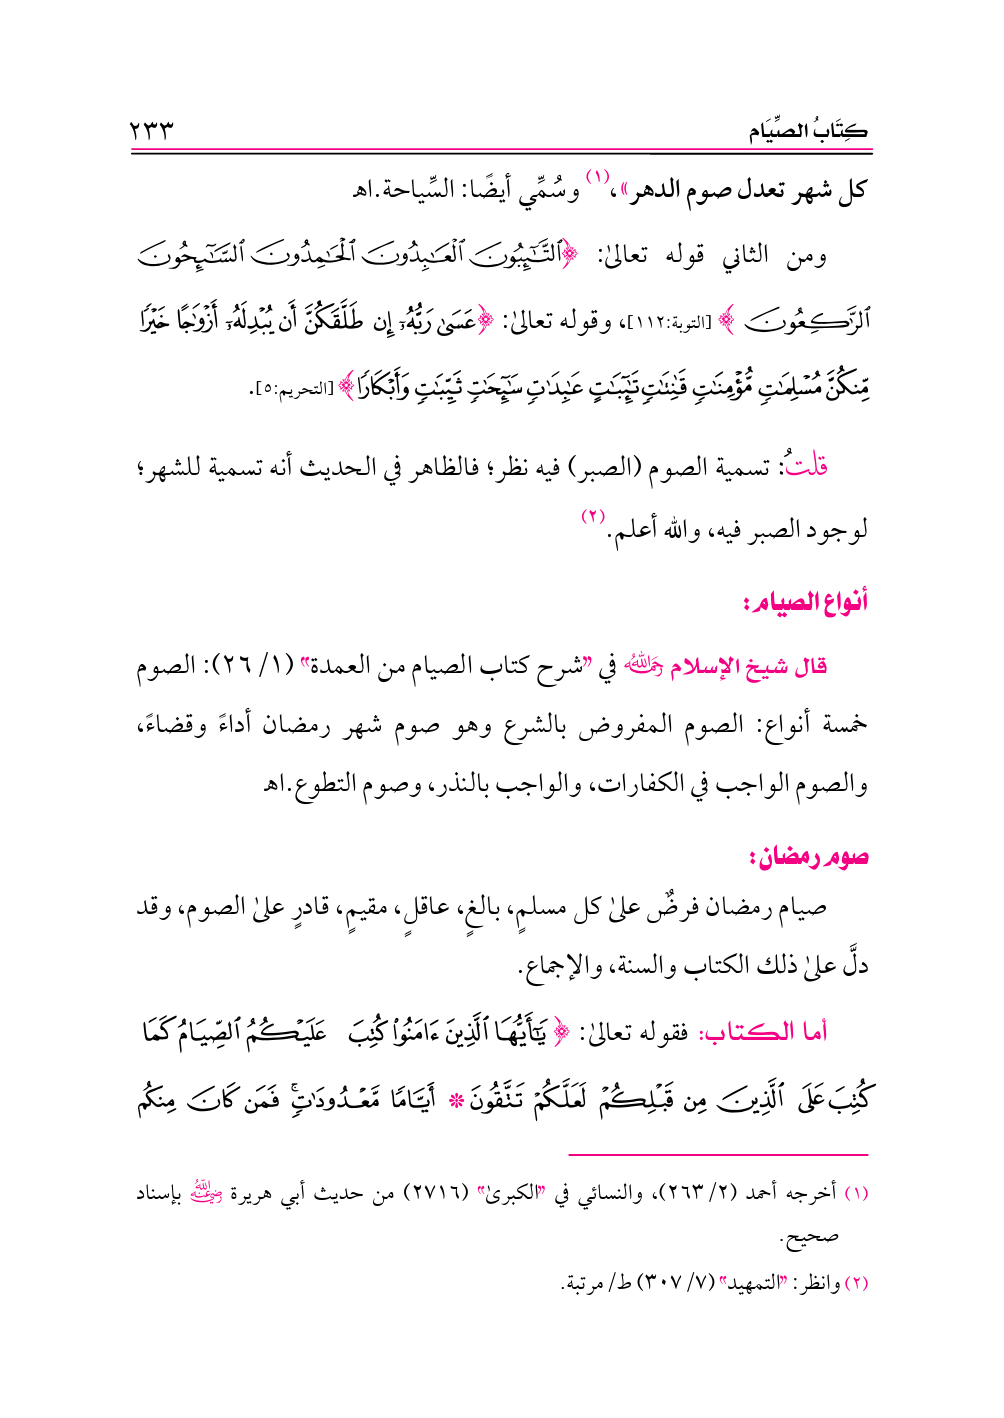 كِتَابُ الصِّيَام ٢٣٣
كل شهر تعدل صوم الدهر»،(١) وسُمِّي أيضًا: السِّياحة.اهـ
ومن الثاني قوله تعالىٰ: ﴿ٱلتَّـٰٓئِبُونَ ٱلْعَـٰبِدُونَ ٱلْحَـٰمِدُونَ ٱلسَّـٰٓئِحُونَ
ٱلرَّٰكِعُونَ﴾ [التوبة:١١٢]، وقوله تعالىٰ: ﴿عَسَىٰ رَبُّهُۥٓ إِن طَلَّقَكُنَّ أَن يُبْدِلَهُۥٓ أَزْوَٰجًا خَيْرًا
مِّنكُنَّ مُسْلِمَـٰتٍ مُّؤْمِنَـٰتٍ قَـٰنِتَـٰتٍ تَـٰٓئِبَـٰتٍ عَـٰبِدَٰتٍ سَـٰٓئِحَـٰتٍ ثَيِّبَـٰتٍ وَأَبْكَارًا﴾ [التحريم:٥].
قلتُ: تسمية الصوم (الصبر) فيه نظر؛ فالظاهر في الحديث أنه تسمية للشهر؛
لوجود الصبر فيه، والله أعلم.(٢)
أنواع الصيام:
قال شيخ الإسلام رحمه الله في "شرح كتاب الصيام من العمدة" (١/ ٢٦): الصوم
خمسة أنواع: الصوم المفروض بالشرع وهو صوم شهر رمضان أداءً وقضاءً،
والصوم الواجب في الكفارات، والواجب بالنذر، وصوم التطوع.اهـ
صوم رمضان:
صيام رمضان فرضٌ علىٰ كل مسلمٍ، بالغٍ، عاقلٍ، مقيمٍ، قادرٍ علىٰ الصوم، وقد
دلَّ علىٰ ذلك الكتاب والسنة، والإجماع.
أما الكتاب: فقوله تعالىٰ: ﴿يَـٰٓأَيُّهَا ٱلَّذِينَ ءَامَنُوا۟ كُتِبَ عَلَيْكُمُ ٱلصِّيَامُ كَمَا
كُتِبَ عَلَى ٱلَّذِينَ مِن قَبْلِكُمْ لَعَلَّكُمْ تَتَّقُونَ * أَيَّامًا مَّعْدُودَٰتٍ ۚ فَمَن كَانَ مِنكُم
(١) أخرجه أحمد (٢/ ٢٦٣)، والنسائي في "الكبرىٰ" (٢٧١٦) من حديث أبي هريرة رضي الله عنه بإسناد
صحيح.
(٢) وانظر: "التمهيد" (٧/ ٣٠٧) ط/ مرتبة.